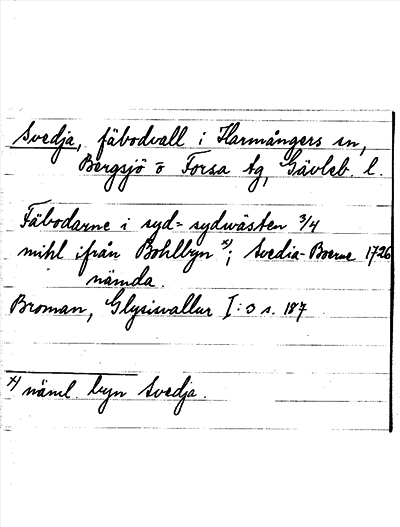 Svedja, fäbodvall i Harmångers sn,
Bergsjö o Forsa tg, Gävleb. l.
Fäbodarne i syd= sydwästen 3/4
mihl ifrån Bohlbyn x); Svedia-Boerne 1726
nämda.
Broman, Glysisvallur I:3 s. 187
x) näml. byn Svedja.